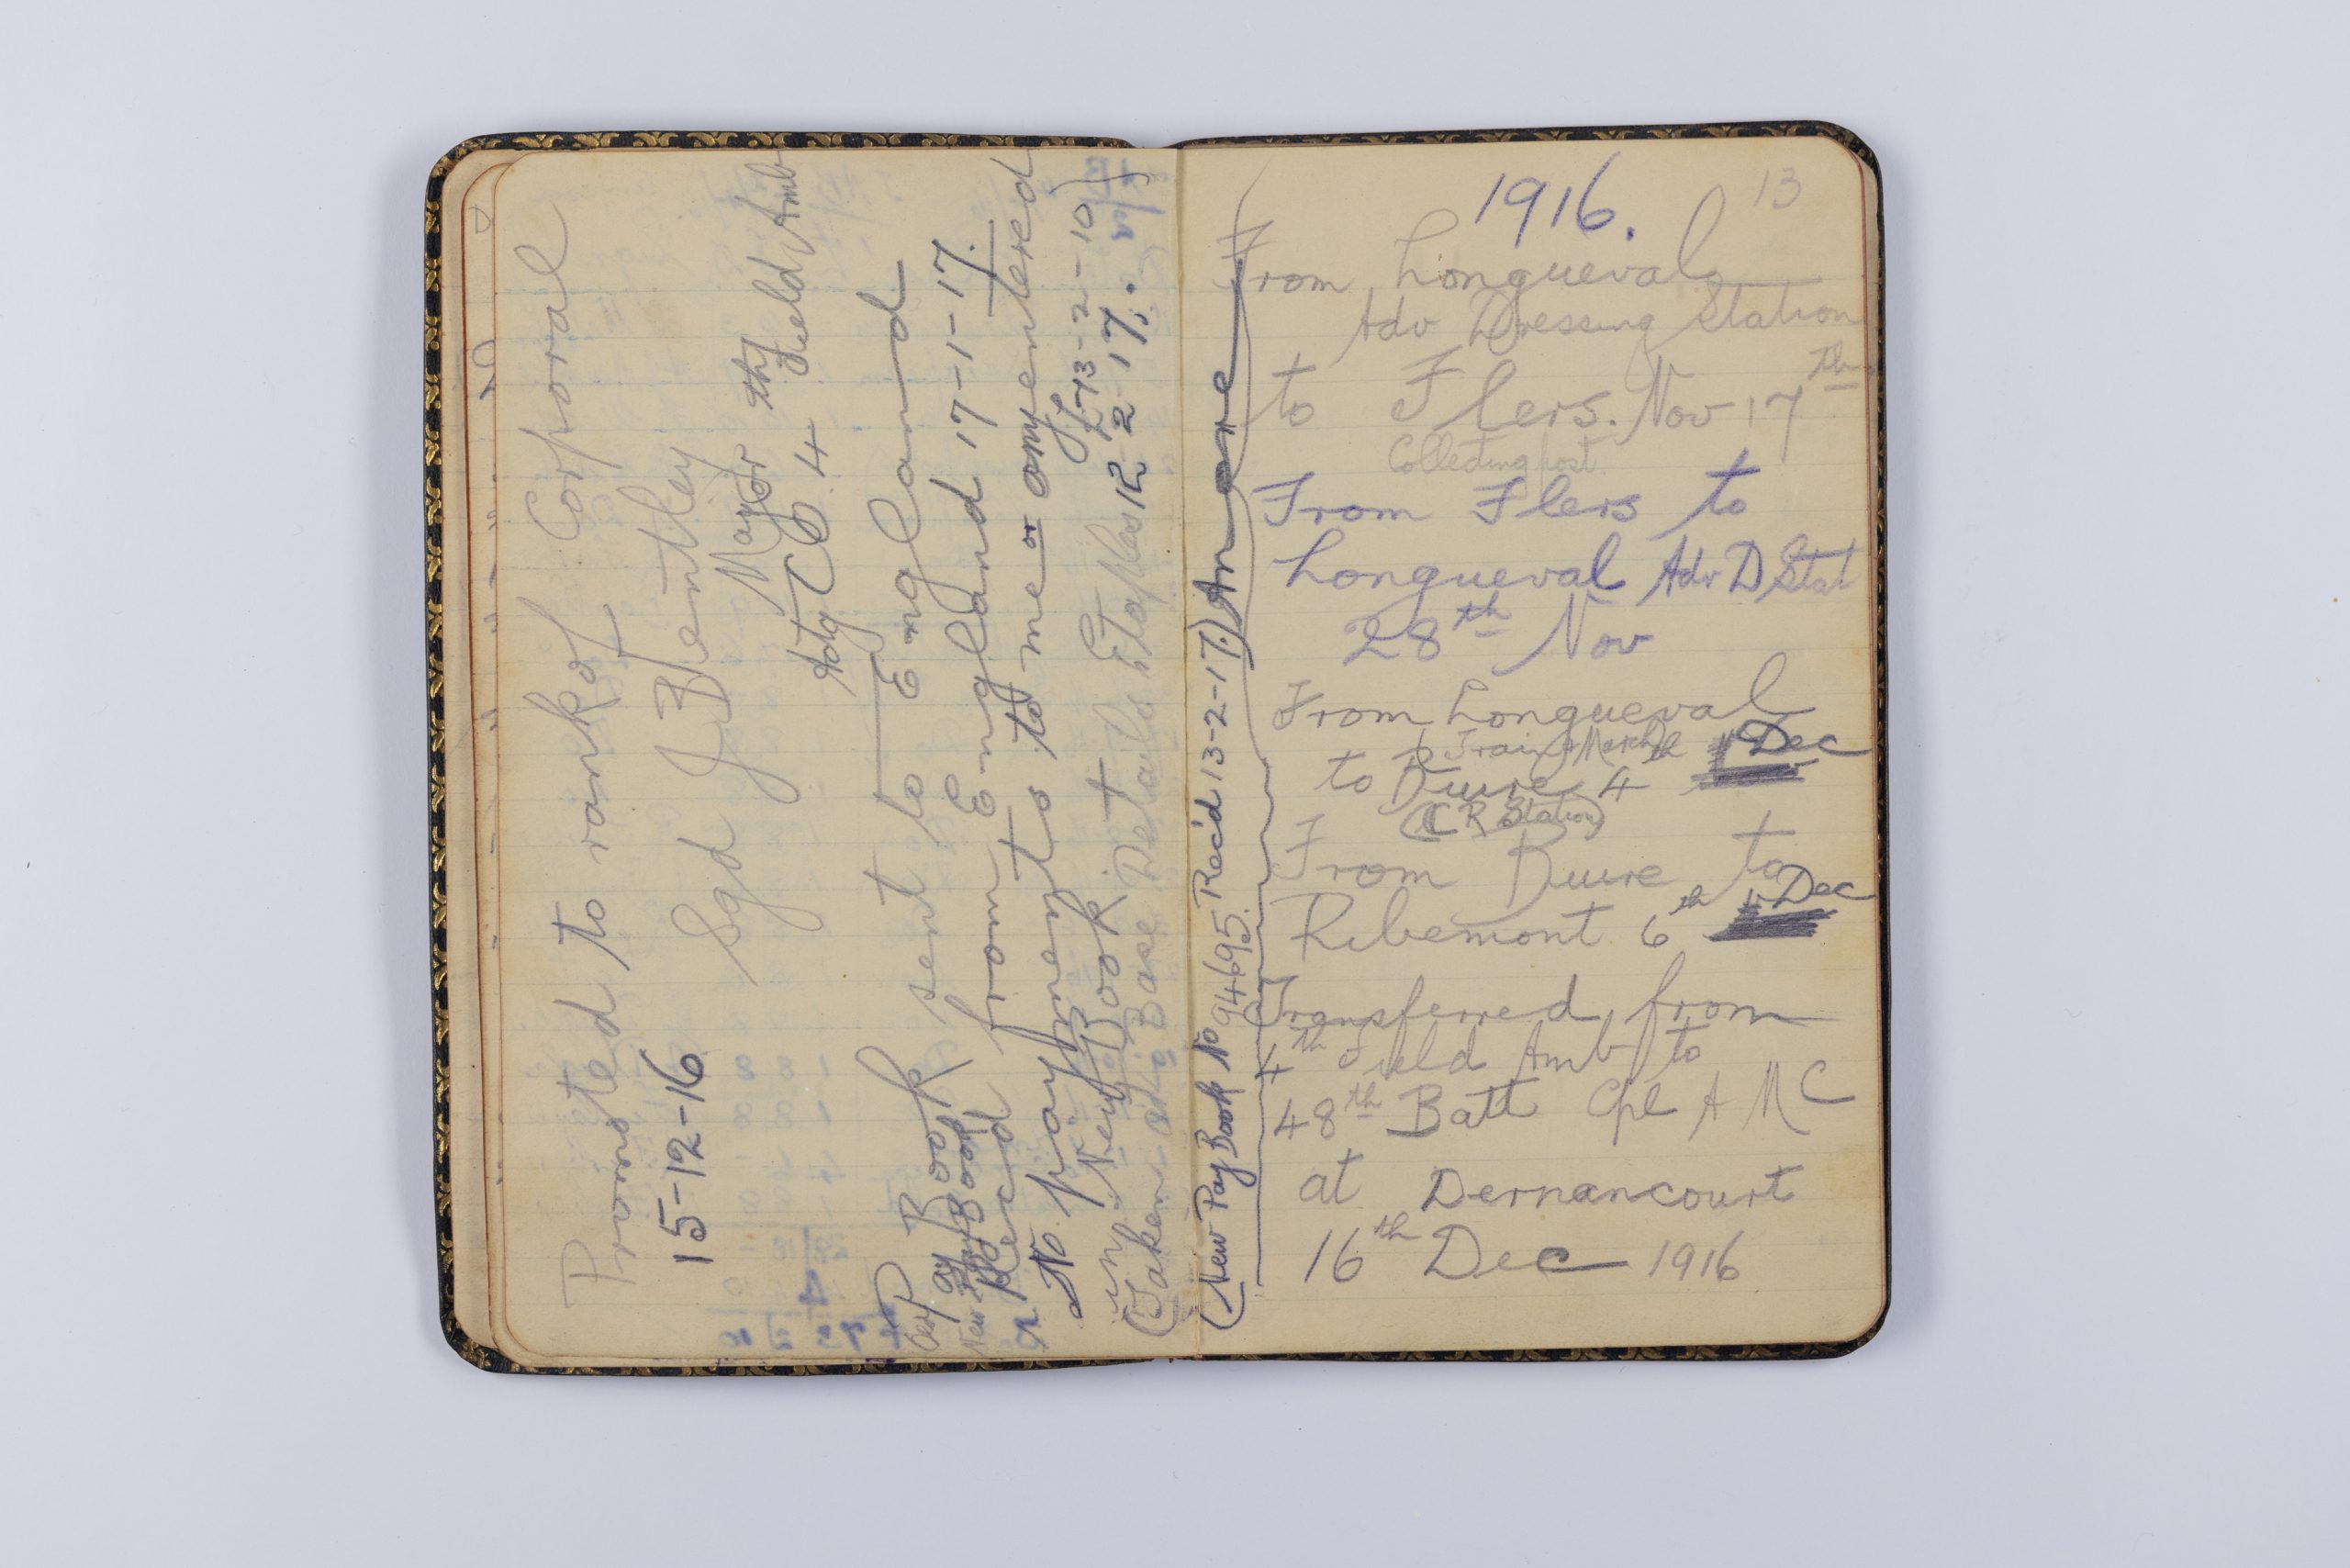 Promoted to rank of Corporal
15-12-16
Sgd J Bentley
Major
Actg CO 4th Field Amb
Pay Book sent to England
New Pay Book
Recd from England 17-1-17.
No payments to me or omy entered
in New Book £13-2-10)
(Taken at Base Details Etaples 12-2-17.
(New Pay Book No 94695. Rec'd 13-2-17.)
1916.
13
From Longueval
Adv Dressing Station
to Flers. Nov 17th
Collecting post.
From Flers to
Longueval Adv D Stat
28th Nov
From Longueval
Train & March
to Buire 4th Dec
(C R Station)
From Buire to
Ribemont 6th Dec
Transferred from
4th Field Amb to
48th Batt Cpl A M C
at Dernancourt
16th Dec 1916